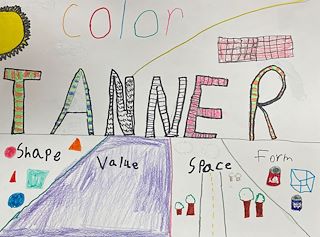 color
TANNER
Shape Value Space Form